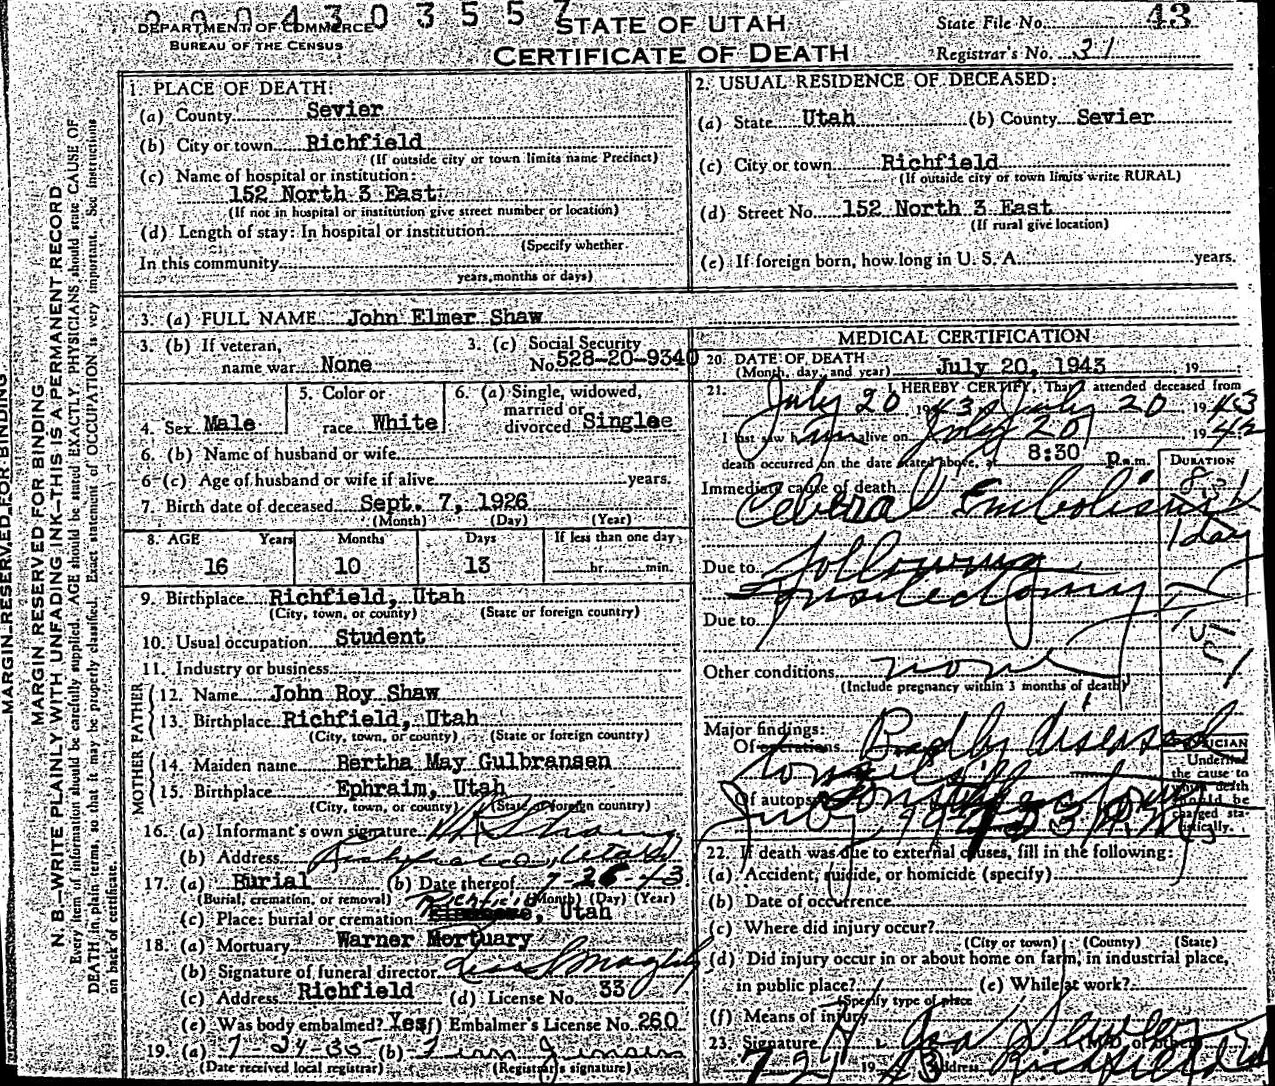 0 0 0 4 3 0 3 5 5 7
DEPARTMENT OF COMMERCE
BUREAU OF THE CENSUS
STATE OF UTAH
CERTIFICATE OF DEATH
State File No. 43
Registrar's No. 31
MARGIN RESERVED FOR BINDING
MARGIN RESERVED FOR BINDING
N. B.—WRITE PLAINLY WITH UNFADING INK—THIS IS A PERMANENT RECORD
Every item of information should be carefully supplied. AGE should be stated EXACTLY. PHYSICIANS should state CAUSE OF
DEATH in plain terms, so that it may be properly classified. Exact statement of OCCUPATION is very important. See instructions
on back of certificate.
1. PLACE OF DEATH:
(a) County Sevier
(b) City or town Richfield
(If outside city or town limits name Precinct)
(c) Name of hospital or institution:
152 North 3 East
(If not in hospital or institution give street number or location)
(d) Length of stay: In hospital or institution
(Specify whether
In this community
years, months or days)
2. USUAL RESIDENCE OF DECEASED:
(a) State Utah (b) County Sevier
(c) City or town Richfield
(If outside city or town limits write RURAL)
(d) Street No. 152 North 3 East
(If rural give location)
(e) If foreign born, how long in U. S. A. years.
3. (a) FULL NAME John Elmer Shaw
3. (b) If veteran,
name war None
3. (c) Social Security
No. 528-20-9340
4. Sex Male
5. Color or
race White
6. (a) Single, widowed,
married or
divorced Singlee
6. (b) Name of husband or wife
6 (c) Age of husband or wife if alive years.
7. Birth date of deceased Sept. 7, 1926
(Month) (Day) (Year)
8. AGE Years Months Days If less than one day
16 10 13 hr. min.
9. Birthplace Richfield, Utah
(City, town, or county) (State or foreign country)
10. Usual occupation Student
11. Industry or business
FATHER
12. Name John Roy Shaw
13. Birthplace Richfield, Utah
(City, town, or county) (State or foreign country)
MOTHER
14. Maiden name Bertha May Gulbransen
15. Birthplace Ephraim, Utah
(City, town, or county) (State or foreign country)
16. (a) Informant's own signature Shaw
(b) Address Richfield, Utah
17. (a) Burial (b) Date thereof 7-26-43
(Burial, cremation, or removal) (Month) (Day) (Year)
(c) Place: burial or cremation Richfield, Utah
18. (a) Mortuary Warner Mortuary
(b) Signature of funeral director
(c) Address Richfield (d) License No. 33
(e) Was body embalmed? Yes (f) Embalmer's License No. 260
19. (a) (b)
(Date received local registrar) (Registrar's signature)
MEDICAL CERTIFICATION
20. DATE OF DEATH
(Month, day, and year) July 20, 1943 19
21. I HEREBY CERTIFY, That I attended deceased from
July 20 1943, July 20 1943
I last saw him alive on July 20, 1943
death occurred on the date stated above, at 8:30 P.m.
DURATION
Immediate cause of death
Cebral Embolism
1 day
Due to following
Tonsilectomy
Due to
Other conditions none
(Include pregnancy within 3 months of death)
Major findings:
Of operations Badly diseased
tonsils
Of autopsy
July 19
PHYSICIAN
Underline
the cause to
which death
should be
charged sta-
tistically.
22. If death was due to external causes, fill in the following:
(a) Accident, suicide, or homicide (specify)
(b) Date of occurrence
(c) Where did injury occur?
(City or town) (County) (State)
(d) Did injury occur in or about home on farm, in industrial place,
in public place? (e) While at work?
(Specify type of place
(f) Means of injury
23. Signature (M.D. or other)
7-21 1943 Address Richfield